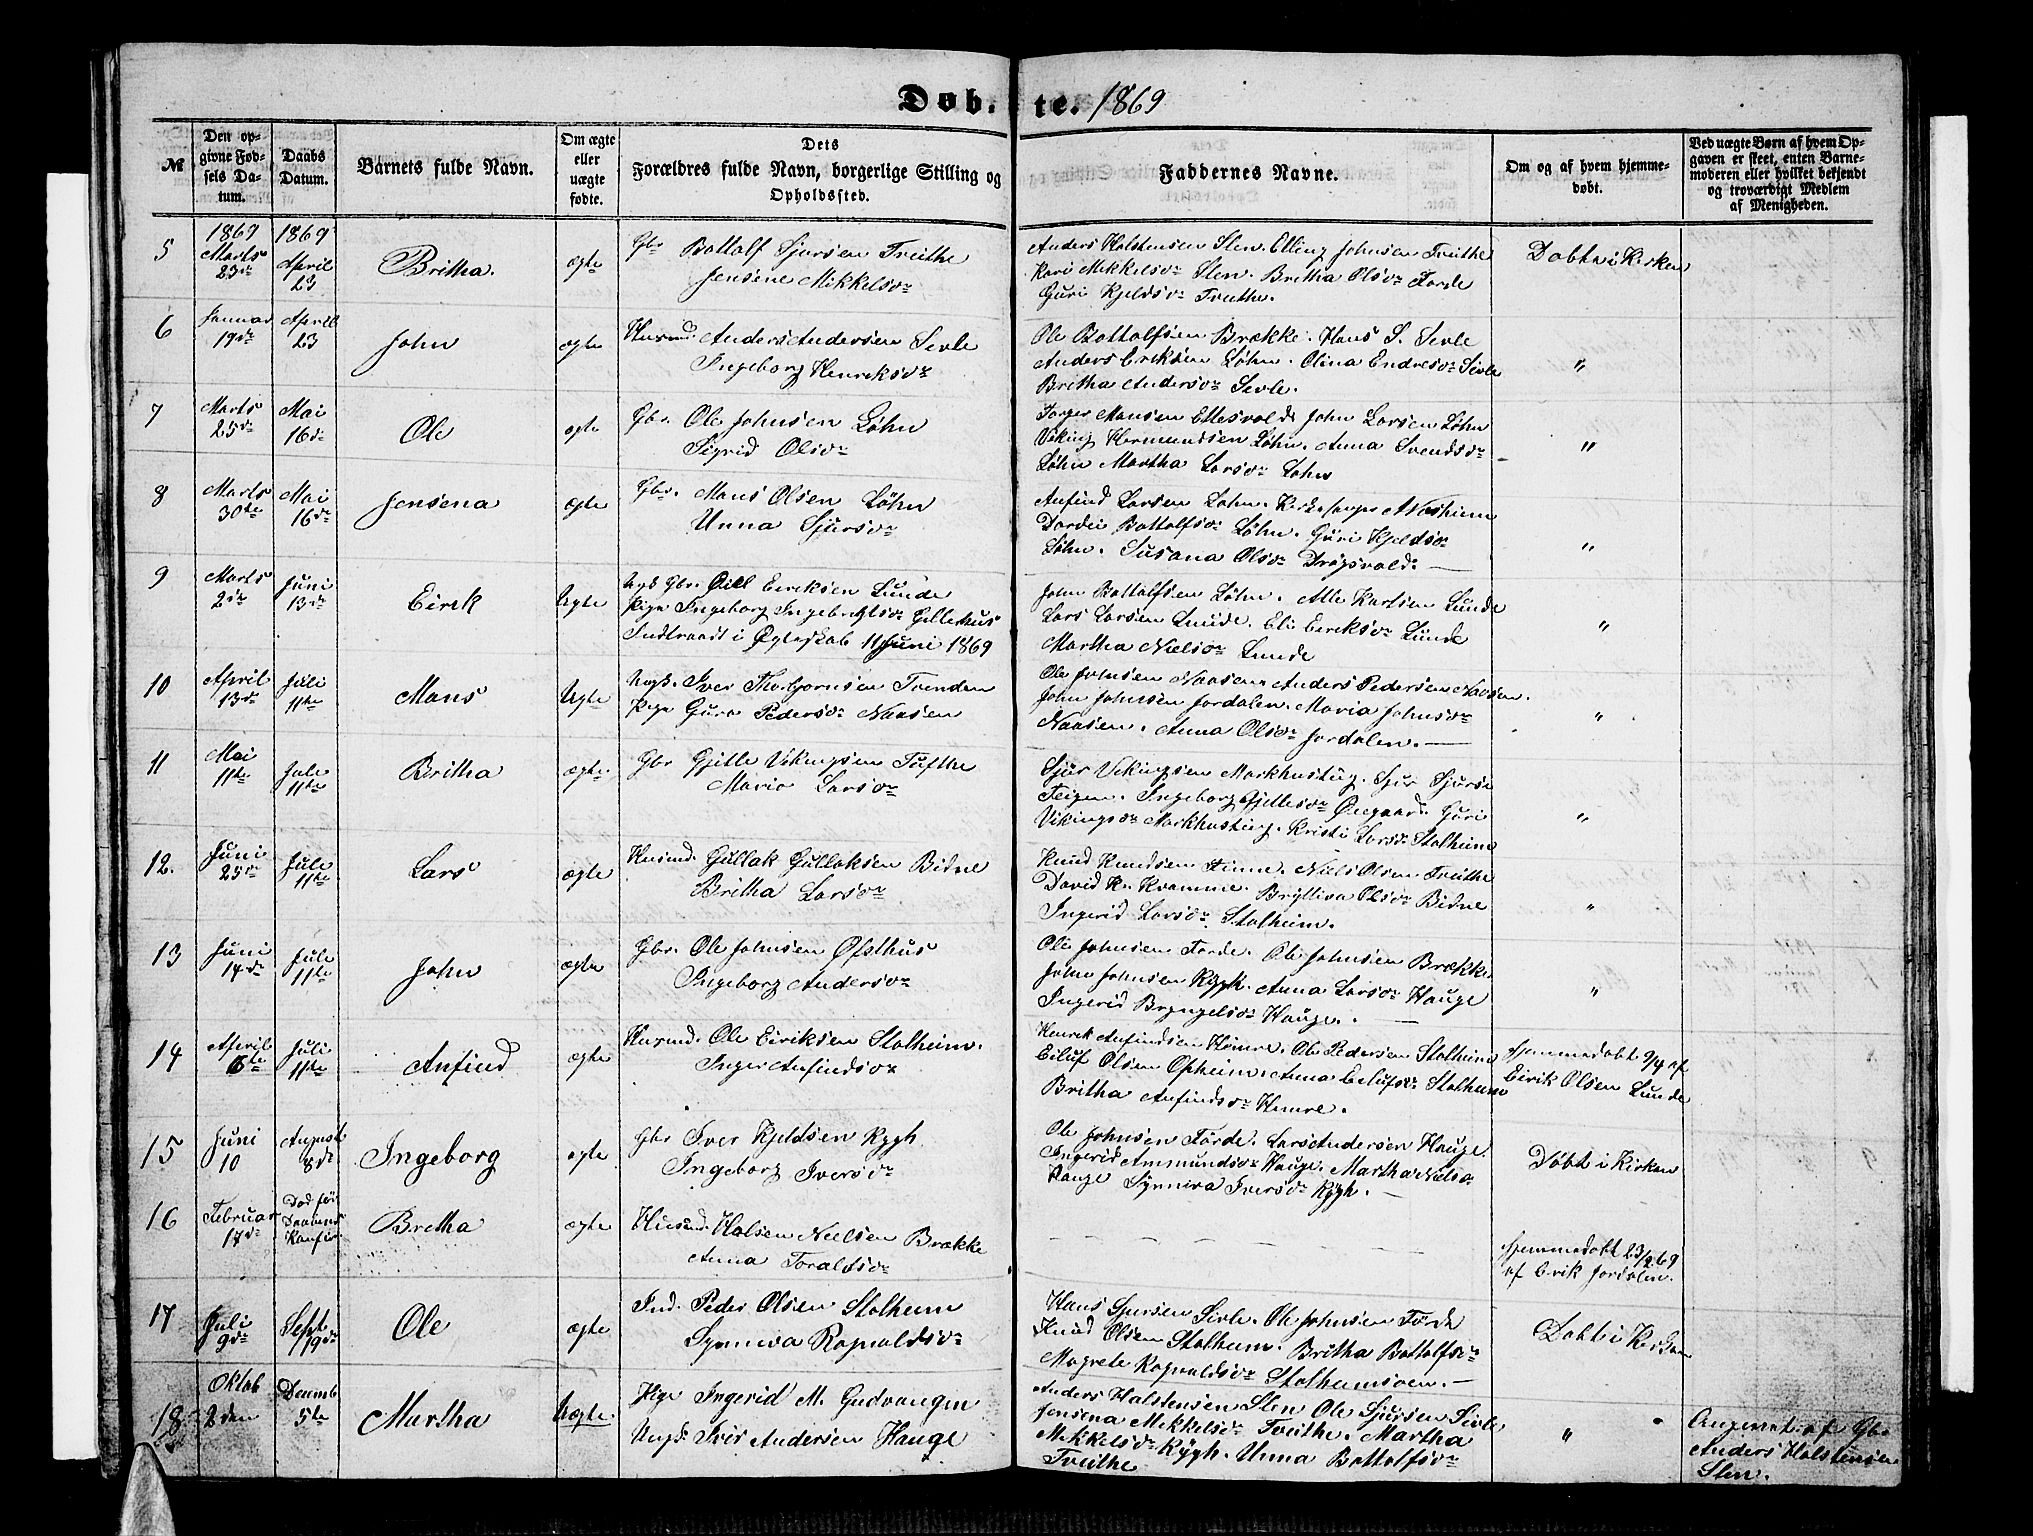 Døb. te. 1869
№
Den op-
givne Fød-
sels Da-
tum.
Daabs
Datum.
Barnets fulde Navn.
Om ægte
eller
uægte
fødte.
Dets
Forældres fulde Navn, borgerlige Stilling og
Opholdssted.
Faddernes Navne.
Om og af hvem hjemme-
døbt.
Ved uægte Børn af hvem Op-
gaven er skeet, enten Barne-
moderen eller hvilket bekjendt
og troværdigt Medlem
af Menigheden.
5
1869
Marts
23de
1869
April
23
Britha.
ægte
Gbr Bottolf Sjursen Treithe
Jensene Mikkelsdr
Anders Halstensen Slen. Elling Johnsen Treithe
Kari Mikkelsdr Slen. Britha Olsdr Førde
Guri Kjeldsdr Treithe.
Døbt i Kirken
6
Januar
19de
April
23
John
ægte
Husmd Anders Andersen Sivle
Ingeborg Henriksdr
Ole Bottolfsen Brække. Hans S. Sivle
Anders Eriksen Løhn. Olina Endresdr Sivle
Britha Andersdr Sivle.
"
7
Marts
25de
Mai
16de
Ole
ægte
Gbr. Ole Johnsen Løhn
Sigrid Olsdr
Torger Monsen Ettesvold. John Larsen Løhn
Viking Hermundsen Løhn. Anna Svendsdr
Løhn Martha Larsdr Løhn
"
8
Marts
30te
Mai
16de
Jensena
ægte
Gbr. Mons Olsen Løhn
Unna Sjursdr
Anfind Larsen Løhn. Kirkesanger A Nashiem
Dordei Bottolfsdr Løhn. Guri Kjeldsdr
Løhn. Susana Olsdr Drøgsvold.
"
9
Marts
2de
Juni
13de
Eirik
Uegte
Ugk Gbr. Eirik Lunde
Pige Ingeborg Ingebrigtsdr Gillerhus
Indtraadt i Ægteskab 11 Juni 1869
John Bottolfsen Løhn. Atle Larsen Lunde
Lars Larsen Lunde. Eli Eiriksdr Lunde
Martha Nielsdr Lunde
"
10
April
13de
Juli
11te
Mons
Uegte
Ungk. Iver Thorbjørnsen Trenden
Pige Guro Pedersdr Naasen
Ole Johnsen Naasen. Anders Pedersen Naasen.
John Johnsen Jordalen. Maria Johnsdr
Naasen. Anna Olsdr Jordalen.
"
11
Mai
11te
Jule
11te
Britha
ægte.
Gbr Gjelle Vikingsen Tufthe
Maria Larsdr
Sjur Vikingsen Markhusteig. Sjur Sjurse
Teigen. Ingeborg Gjellesdr Øvegaard. Guri
Vikingsdr Markhusteig. Kristi Larsdr Stalheim
"
12.
Juni
25de
Jule
11te
Lars
ægte
Husmd. Gullak Gullaksen Bidne
Britha Larsdr
Knud Knudsen Finne. Niels Olsen Treithe
David K. Kvamme. Bryllisa Olsdr Bidne
Ingerid Larsdr Stalheim.
"
13
Juni
14de
Jule
11te
John
ægte
Gbr. Ole Johnsen Øfsthus
Ingeborg Andersdr
Ole Johnsen Førde. Ole Johnsen Brække
John Johnsen Rygh. Anna Larsdr Hauge
Ingerid Bryngelsdr Hauge.
"
14
April
6te
Juli
11te
Anfind
ægte
Husmd. Ole Eiriksen Stalheim.
Inger Anfindsdr
Henrik Anfindsen Himre. Ole Pedersen Stalheim
Eiluf Olsen Opheim. Anna Eilufsdr Stalheim
Britha Anfindsdr Himre.
Hjemmedøbt 9/4 af
Eirik Olsen Lunde
15
Juni
10
August
8de
Ingeborg
ægte
Gbr Iver Kjeldsen Rygh
Ingeborg Iversdr
Ole Johnsen Førde. Lars Andersen Hauge.
Ingerid Ammundsdr Hauge. Martha Nielsdr
Hauge Synneva Iversdr Rygh.
Døbt i Kirken
16
Februar
17de
Død før
Daabens
Konfir.
Britha
ægte
Husmd. Halsen Nielsen Brække
Anna Toraldsdr
Hjemmedøbt 23/2 69
af Eirik Jordalen.
17
Juli
9de
Sept.
19de
Ole
ægte
Ind. Peder Olsen Stalheim
Synneva Ragnaldsdr
Hans Sjursen Sivle. Ole Johnsen Førde
Knud Olsen Stalheim. Britha Bottolfsdr
Magrete Ragnaldsdr Stalheimsøen.
Døbt i Kirken
18
Oktob
2den
Decemb
5te
Martha
Uægte
Pige Ingerid M. Gudvangen
Ungk. Iver Andersen Hauge
Anders Halstensen Slen Ole Sjursen Sivle
Jensena Mikkelsdr Treithe. Martha
Mikkelsdr Rygh. Unna Bottolfsdr
Treithe
"
Angivet af Gbr
Anders Halstensen
Slen.